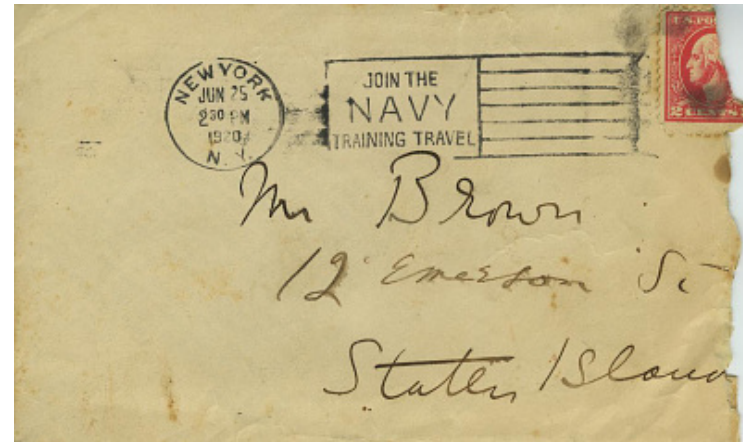 NEW YORK
JUN 25
2 30 PM
1920
N.Y.
JOIN THE
NAVY
TRAINING TRAVEL
U.S. PO
2 CENTS
Mr Brown
12 Emerson St
Staten Island